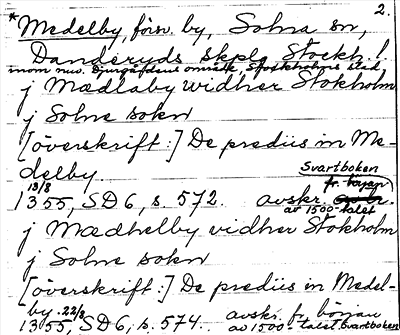 2.
*Medelby, försv. by, Solna sn,
Danderyds skplg Stockh. l.
inom nuv. Djurgårdens område, Stockholms stad
j Mædlaby widher Stokholm
j Solne sokn
[överskrift:] De prediis in Me-
delby.
Svartboken
13/8 fr. början
1355, SD6, s. 572. avskr.
av 1500-talet
j Mædhelby vidher Stokholm
j Solne sokn
[överskrift:] De prediis in Medel-
by. 22/8 avskr. fr. början
1355, SD6, s. 574. av 1500-talet. Svartboken